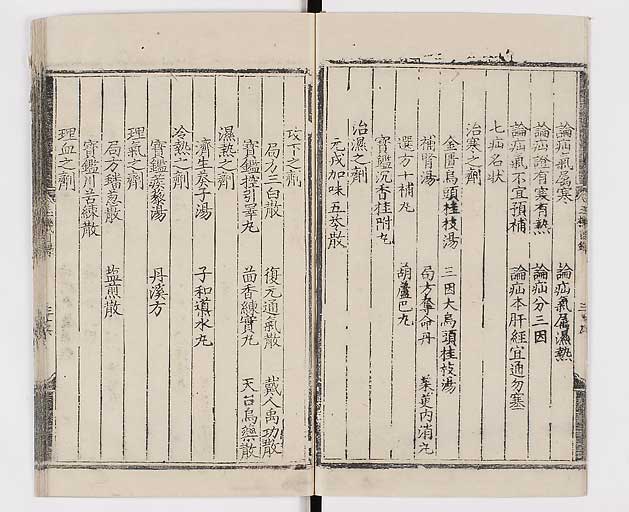 論疝氣屬寒 論疝氣屬濕熱
論疝證有寒有熱 論疝分三因
論疝氣不宜預補 論疝本肝經宜通勿塞
七疝名狀
治寒之劑
金匱烏頭桂枝湯 三因大烏頭桂枝湯
補腎湯 局方奪命丹 茱萸內消丸
選方十補丸 葫蘆巴丸
寶鑑沉香桂附丸
治濕之劑
元戎加味五苓散
攻下之劑
局方三白散 復元通氣散 戴人禹功散
寶鑑控引睪丸 茴香練實丸 天台烏藥散
濕熱之劑
濟生葵子湯 子和導水丸
冷熱之劑
寶鑑蒺藜湯 丹溪方
理氣之劑
局方蟠葱散 盐煎散
寶鑑川苦練散
理血之劑